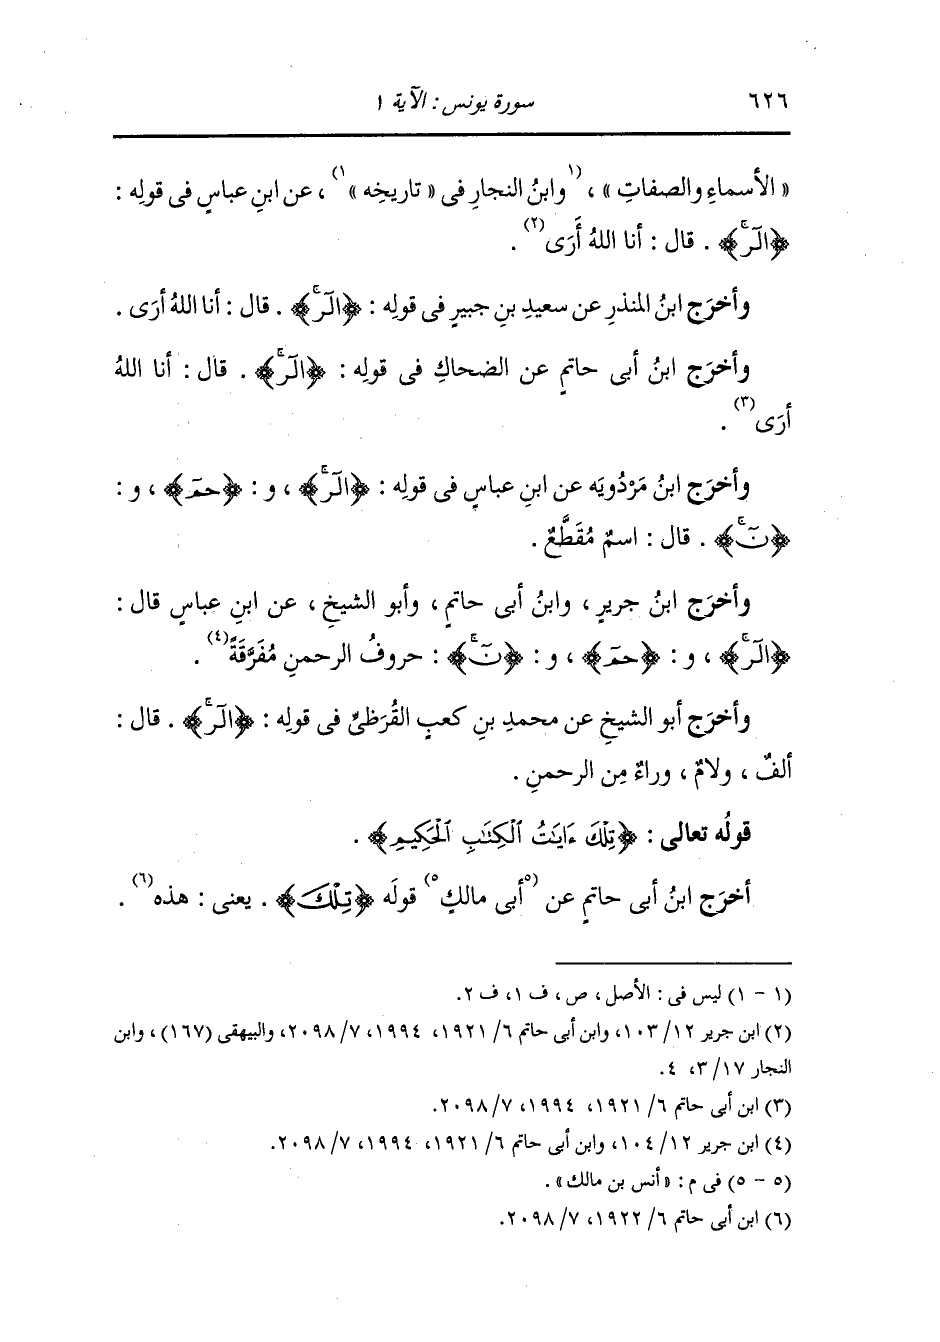 ٦٢٦
سورة يونس : الآية ١
« الأسماءِ والصفاتِ » ، (١وابنُ النجارِ فى « تاريخِه »١) ، عن ابنِ عباسٍ فى قولِه :
﴿الٓرۚ﴾ . قال : أنا اللهُ أَرَى(٢) .
وأخرَج ابنُ المنذرِ عن سعيدِ بنِ جبيرٍ فى قولِه : ﴿الٓرۚ﴾ . قال : أنا اللهُ أرَى .
وأخرَج ابنُ أبى حاتمٍ عن الضحاكِ فى قولِه : ﴿الٓرۚ﴾ . قال : أنا اللهُ
أرَى(٣) .
وأخرَج ابنُ مَرْدُويَه عن ابنِ عباسٍ فى قولِه : ﴿الٓرۚ﴾ ، و : ﴿حمٓ﴾ ، و :
﴿نٓۚ﴾ . قال : اسمٌ مُقَطَّعٌ .
وأخرَج ابنُ جريرٍ ، وابنُ أبى حاتمٍ ، وأبو الشيخِ ، عن ابنِ عباسٍ قال :
﴿الٓرۚ﴾ ، و : ﴿حمٓ﴾ ، و : ﴿نٓۚ﴾ : حروفُ الرحمنِ مُفَرَّقَةً(٤) .
وأخرَج أبو الشيخِ عن محمدِ بنِ كعبٍ القُرَظىِّ فى قولِه : ﴿الٓرۚ﴾ . قال :
ألفٌ ، ولامٌ ، وراءٌ مِن الرحمنِ .
قولُه تعالى : ﴿تِلْكَ ءَايَٰتُ ٱلْكِتَٰبِ ٱلْحَكِيمِ﴾ .
أخرَج ابنُ أبى حاتمٍ عن (٥أبى مالكٍ٥) قولَه ﴿تِلْكَ﴾ . يعنى : هذه(٦) .
(١ - ١) ليس فى : الأصل ، ص ، ف ١، ف ٢.
(٢) ابن جرير ١٢/ ١٠٣، وابن أبى حاتم ٦/ ١٩٢١، ١٩٩٤، ٧/ ٢٠٩٨، والبيهقى (١٦٧) ، وابن
النجار ١٧/ ٣، ٤.
(٣) ابن أبى حاتم ٦/ ١٩٢١، ١٩٩٤، ٧/ ٢٠٩٨.
(٤) ابن جرير ١٢/ ١٠٤، وابن أبى حاتم ٦/ ١٩٢١، ١٩٩٤، ٧/ ٢٠٩٨.
(٥ - ٥) فى م : «أنس بن مالك» .
(٦) ابن أبى حاتم ٦/ ١٩٢٢، ٧/ ٢٠٩٨.